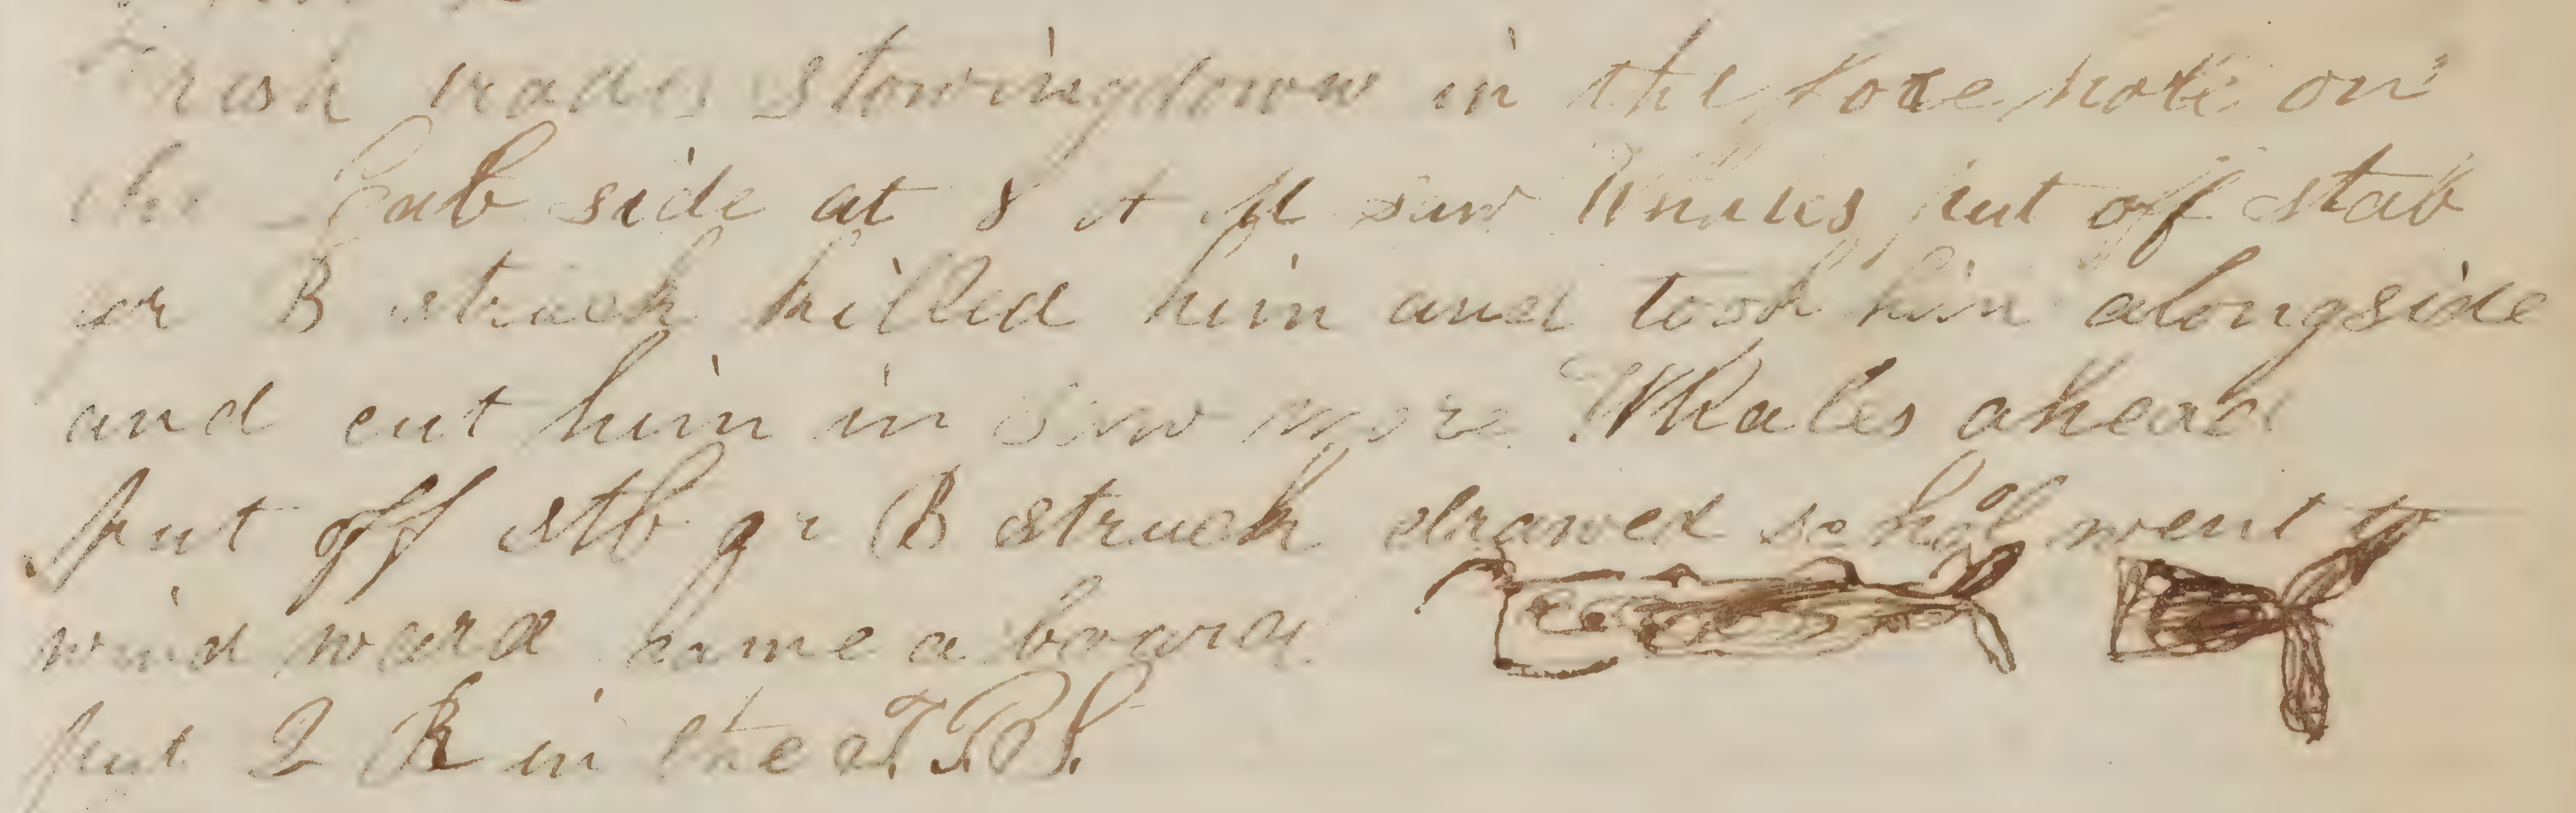 Fresh trades stowing down in the fore hole on
the Lab side at 8 A M saw Whales put off stab
qr B struck killed him and took him alongside
and cut him in saw more Whales ahead
put off stb qr B struck drawed schol went to
wind ward came a board
put 2 R in the